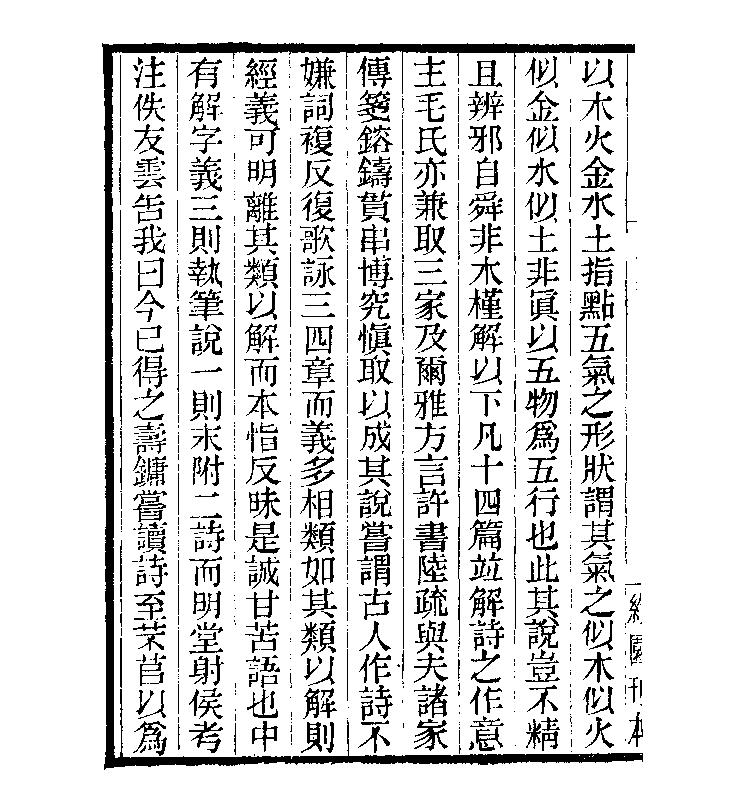 約園刊本
以木火金水土指點五氣之形狀謂其氣之似木似火
似金似水似土非眞以五物爲五行也此其說豈不精
且辨邪自舜非木槿解以下凡十四篇竝解詩之作意
主毛氏亦兼取三家及爾雅方言許書陸疏與夫諸家
傳箋鎔鑄貫串博究愼取以成其說嘗謂古人作詩不
嫌詞複反復歌詠三四章而義多相類如其類以解則
經義可明離其類以解而本恉反昧是誠甘苦語也中
有解字義三則執筆說一則末附二詩而明堂射侯考
注佚友雲告我曰今已得之壽鏞嘗讀詩至芣苢以爲